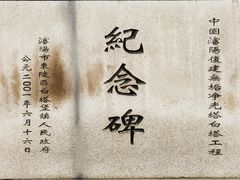 中国瀋陽復建無垢净光塔白塔工程
紀念碑
瀋陽市東陵區白塔堡鎮人民政府
公元二00一年六月十六日